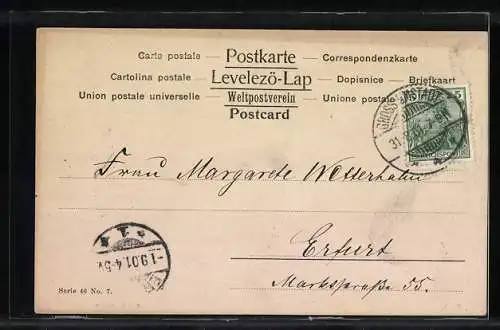 Carte postale — Postkarte — Correspondenzkarte
Cartolina postale — Levelező-Lap — Dopisnice — Briefkaart
Union postale universelle — Weltpostverein — Unione postale
Postcard
5
31.
Frau Margarete Westerhahn
1.9.01.4-5
Erfurt
Marktstraße 55.
Serie 46 No. 7.